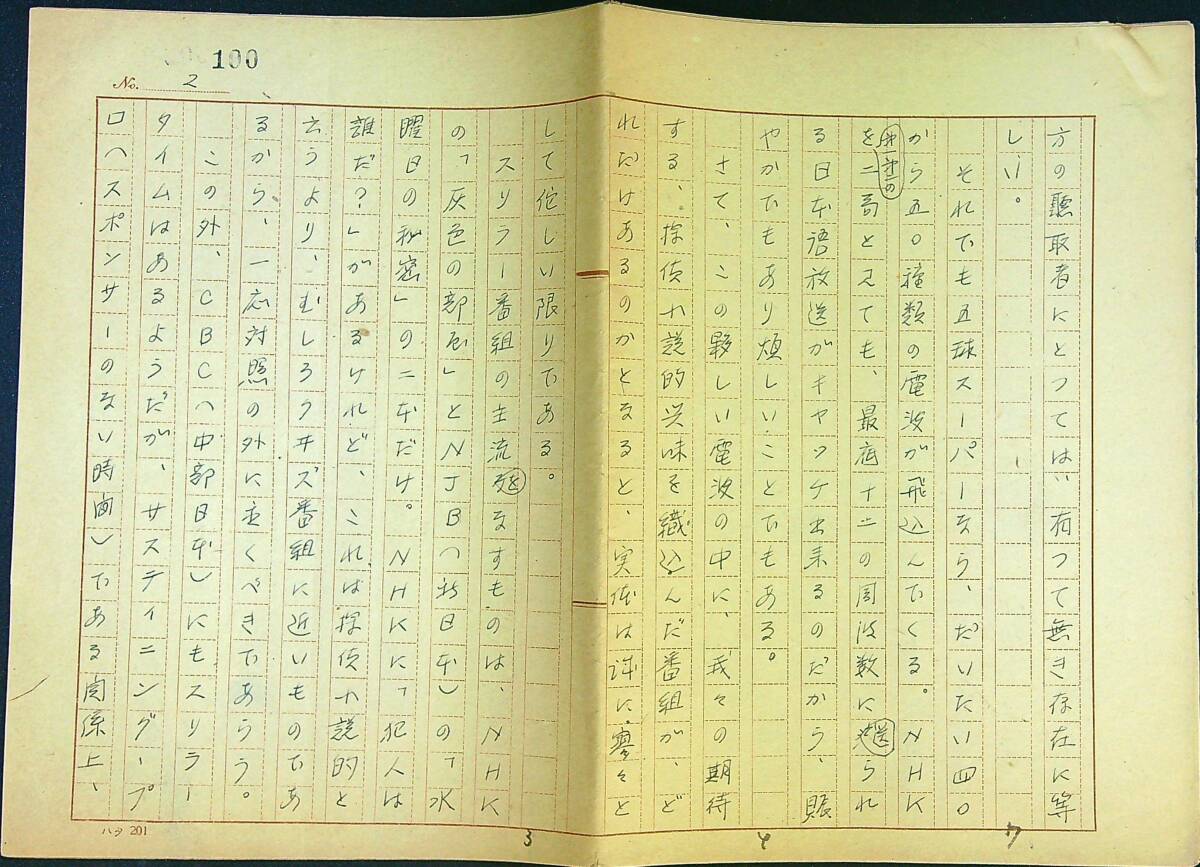 100
No. 2
方の聽取者にとつては、有つて無き存在に等
しい。
それでも五球スーパーなら、だいたい四〇
から五〇種類の電波が飛込んでくる。NHK
中計の
を二局と見ても、最底十二の周波数に送られ
る日本語放送がキヤツチ出来るのだから、賑
やかでもあり煩しいことでもある。
さて、この夥しい電波の中に、我々の期待
する、探偵小説的興味を織込んだ番組が、ど
れだけあるのかとなると、実体は誠に寥々と
して佗しい限りである。
スリラー番組の主流をなすものは、NHK
の「灰色の部屋」とNJB(新日本)の「水
曜日の秘密」の二本だけ。NHKに「犯人は
誰だ?」があるけれど、これは探偵小説的と
云うより、むしろクヰズ番組に近いものであ
るから、一応対照の外に置くべきであらう。
この外、CBC(中部日本)にもスリラー
タイムはあるようだが、サスティニング・プ
ロ(スポンサーのない時間)である関係上、
ハタ 201
3
4
7